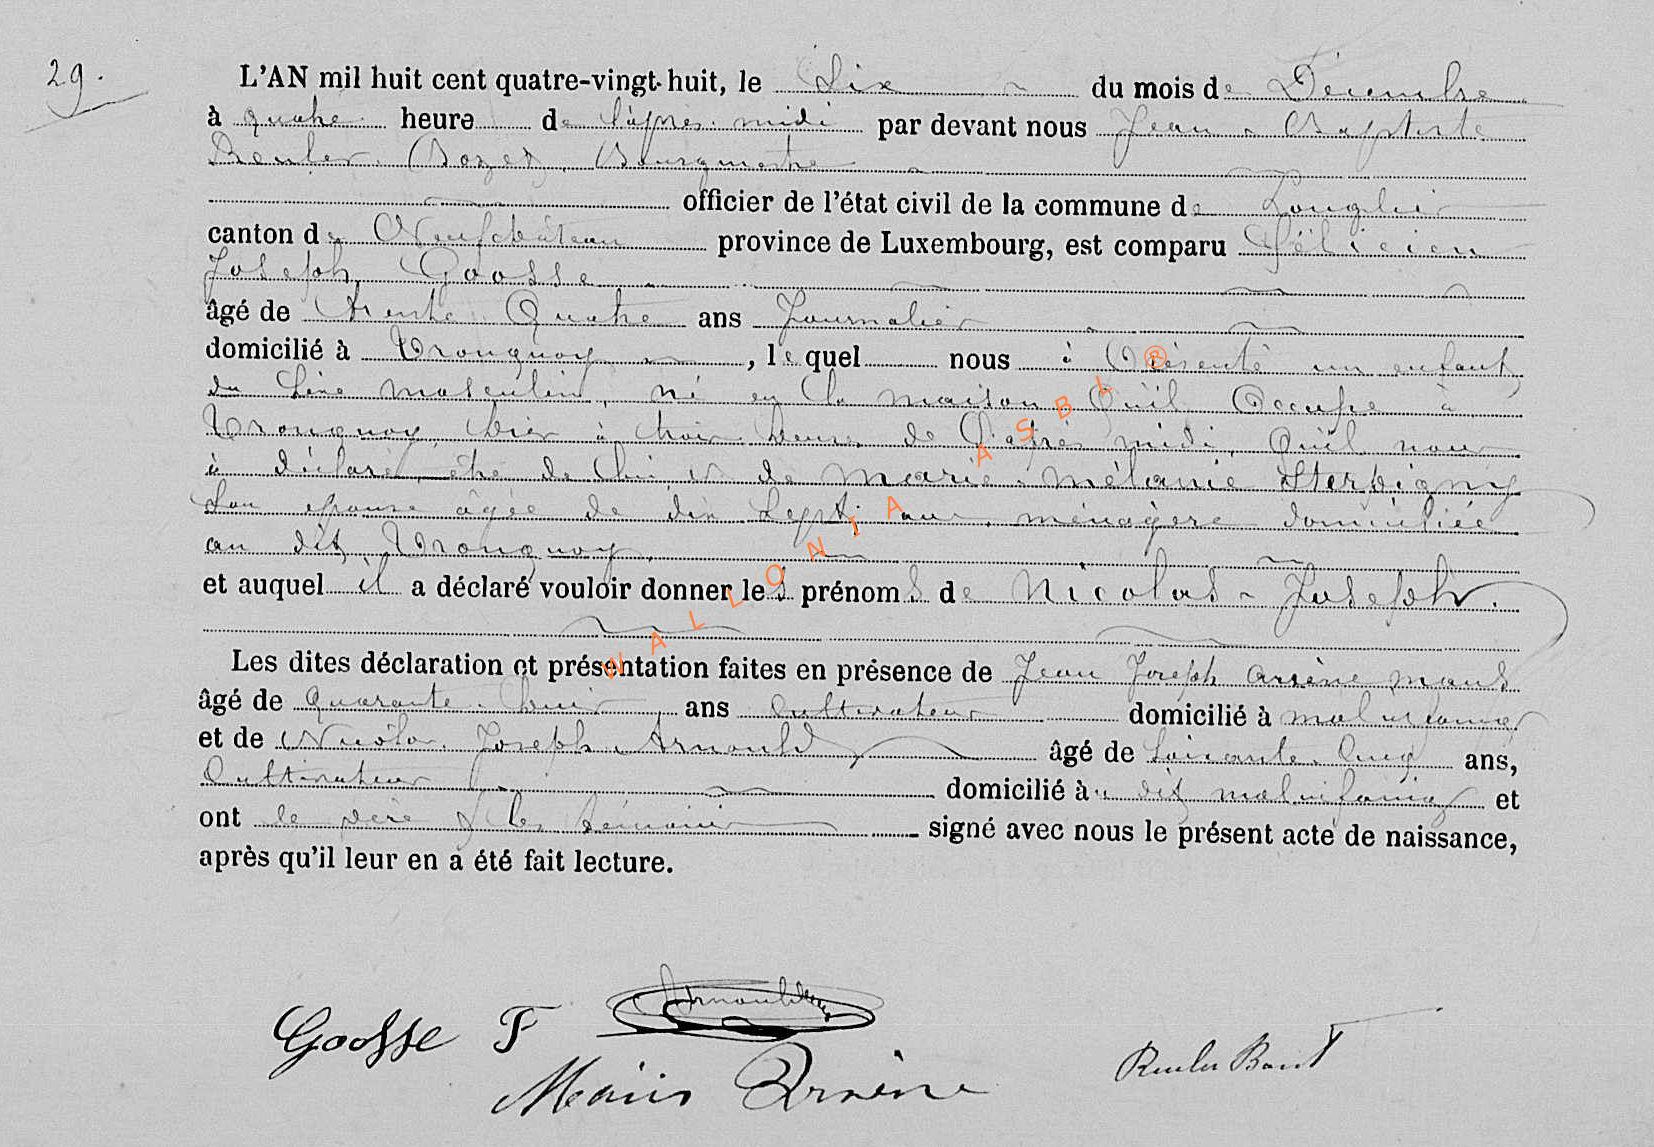 29.
L'AN mil huit cent quatre-vingt huit, le dix du mois de Décembre
à quatre heures de l'après midi par devant nous Jean Baptiste
Reuler Bozet, Bourgmestre
officier de l'état civil de la commune de Longlier
canton de Neufchâteau province de Luxembourg, est comparu Félicien
Joseph Goosse
âgé de trente Quatre ans Journalier
domicilié à Tronquoy, le quel nous à Présenté un enfant
du sexe masculin, né en la maison Qu'il Occupe à
Tronquoy, hier à trois heures de l'après midi, Qu'il nous
à déclaré être de lui et de Marie Mélanie Sterpigny
son épouse âgée de dix sept ans, ménagère domiciliée
au dit Tronquoy,
et auquel il a déclaré vouloir donner les prénoms de Nicolas Joseph.
Les dites déclaration et présentation faites en présence de Jean Joseph Arsène Maus
âgé de quarante huit ans Cultivateur domicilié à
et de Nicolas Joseph Arnould âgé de soixante cinq ans,
Cultivateur domicilié au dit et
ont le père et les témoins signé avec nous le présent acte de naissance,
après qu'il leur en a été fait lecture.
Goosse F Arnould
Arsène
WALLONIA ASBL ®